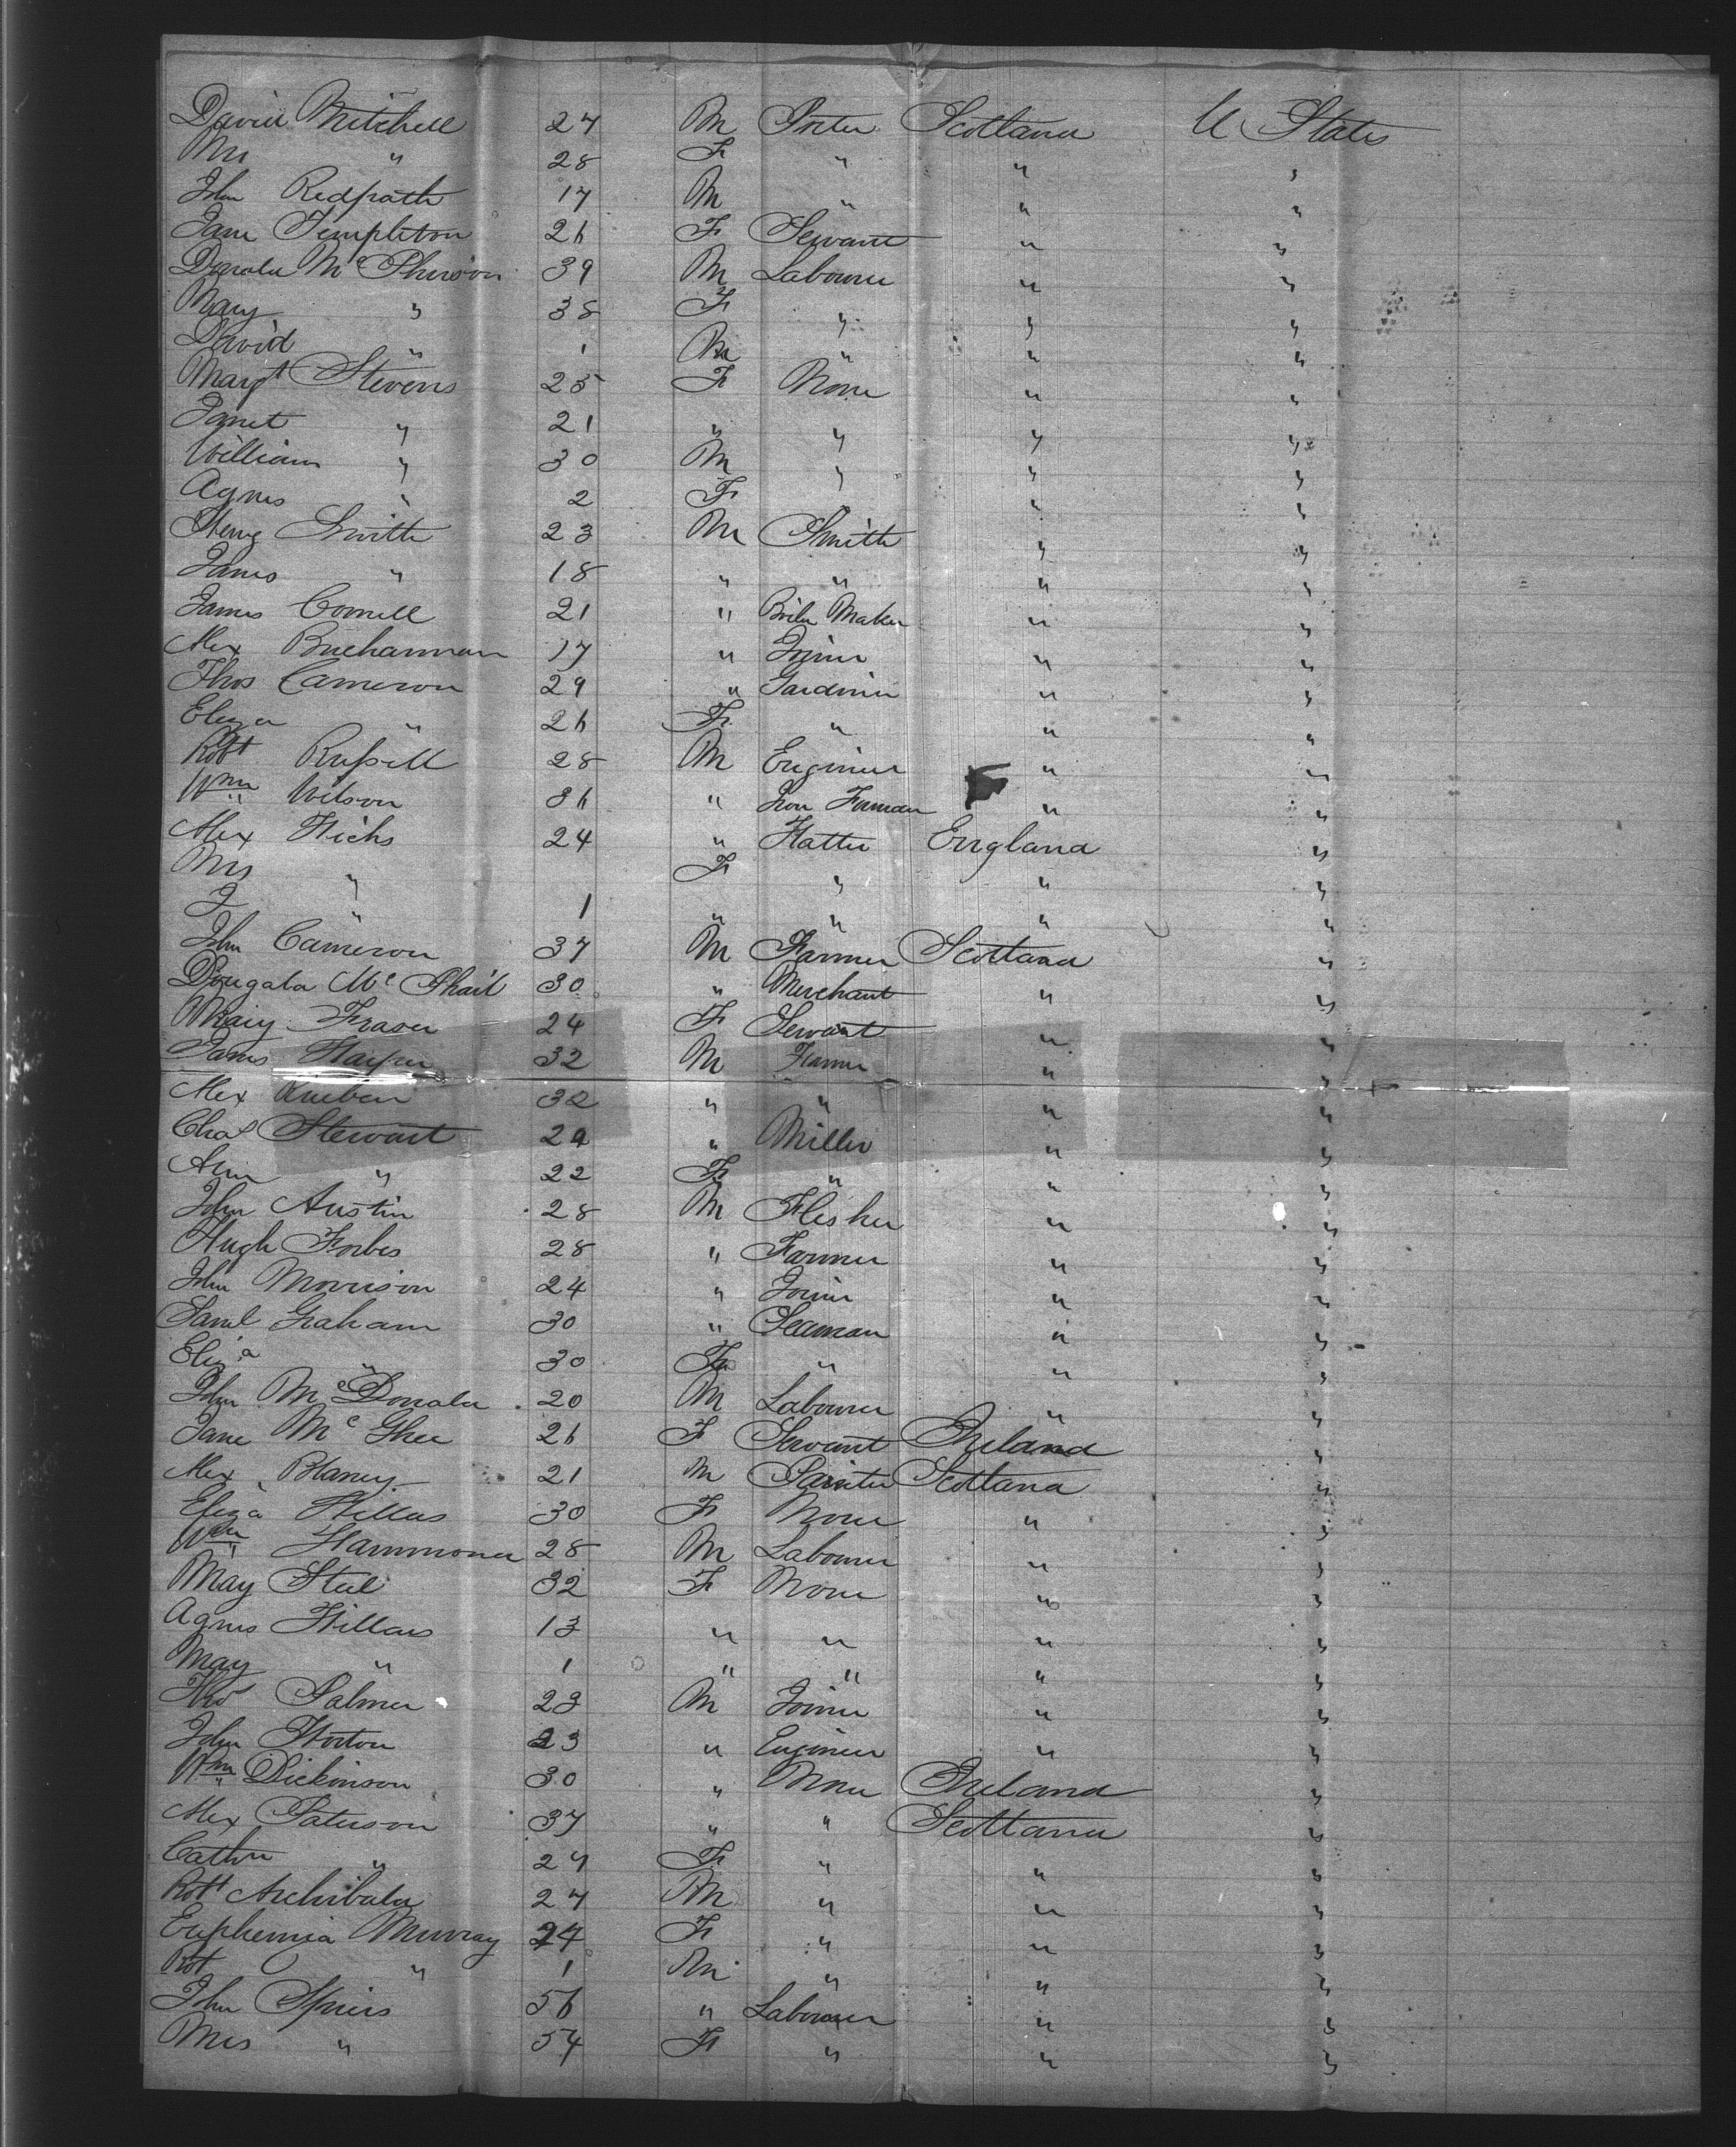 David Mitchell 27 M Porter Scotland U States
Mrs " 28 F " " "
John Redpath 17 M " " "
Jane Templeton 26 F Servant " "
Donald McPherson 39 M Labourer " "
Mary " 38 F " " "
David " 1 M " " "
Margt Stevens 25 F None " "
Janet " 21 " " " "
William " 30 M " " "
Agnes " 2 F " "
Henry Smith 23 M Smith " "
James " 18 " " " "
James Connell 21 " Boiler Maker " "
Alex Buchannan 17 " Joiner " "
Thos Cameron 29 " Gardiner " "
Eliza " 26 F " " "
Robt Russell 28 M Engineer " "
Wm Wilson 36 " Iron Foreman " "
Alex Hicks 24 " Hatter England "
Mrs " F " " "
J " 1 " " " "
John Cameron 37 M Farmer Scotland "
Dougald McPhail 30 " Merchant " "
Mary Fraser 24 F Servant " "
James Harper 32 M Farmer " "
Alex 32 " " " "
Chas Stewart 29 " Miller " "
Ann " 22 F " " "
John Austin 28 M Flesher " "
Hugh Forbes 28 " Farmer " "
John Morrison 24 " Joiner " "
Saml Graham 30 " Seaman " "
Eliza " 30 F " " "
John McDonald 20 M Labourer " "
Jane McGhee 26 F Servant Ireland "
Alex Blaney 21 M Painter Scotland "
Eliza 30 F None " "
Wm Hammond 28 M Labourer " "
May Steel 32 F None " "
Agnes 13 " " " "
May " 1 " " " "
Thos Palmer 23 M Joiner " "
John Horton 23 " Engineer " "
Wm Dickinson 30 " None Ireland "
Alex Paterson 37 " " Scotland "
Cathn " 27 F " " "
Robt Archibald 27 M " " "
Euphemia Murray 24 F " " "
Robt " 1 M " " "
John Spiers 56 " Labourer " "
Mrs " 54 F " " "